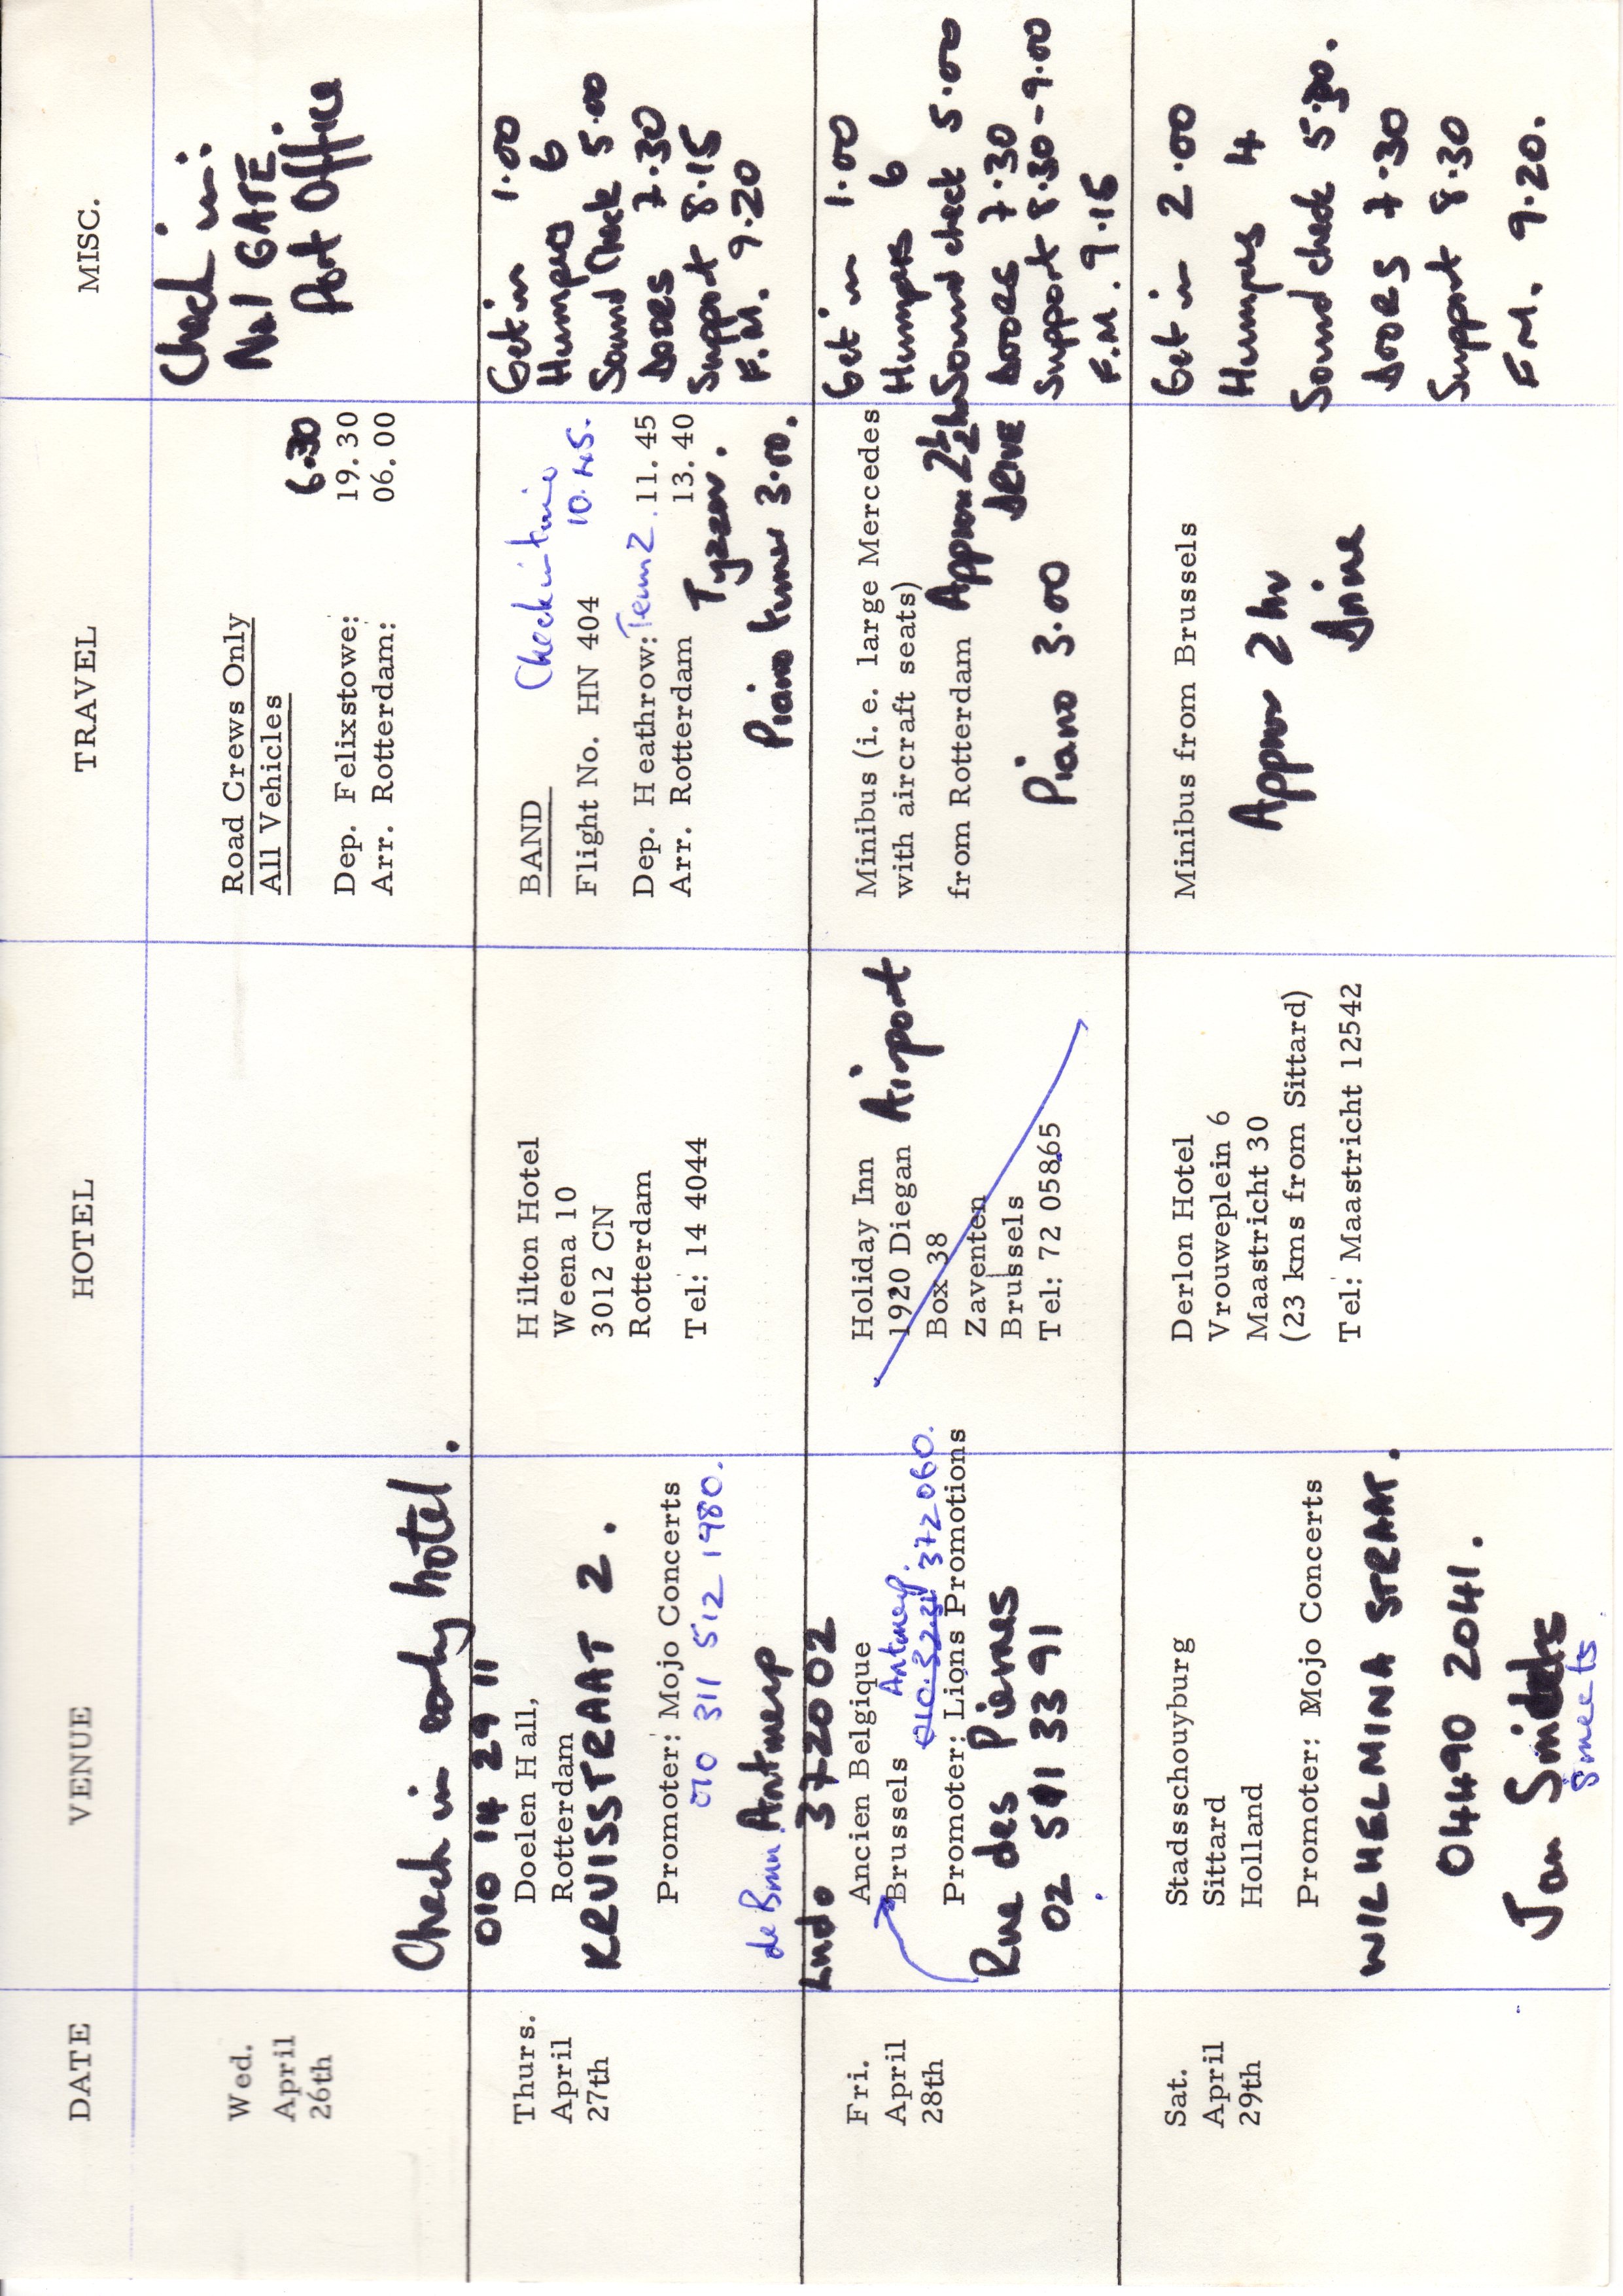 DATE VENUE HOTEL TRAVEL MISC.
Wed.
April
26th
Check in early hotel.
Road Crews Only
All Vehicles
6.30
Dep. Felixstowe: 19.30
Arr. Rotterdam: 06.00
Check in:
No1 GATE.
Port Office
Thurs.
April
27th
010 14 29 11
Doelen Hall,
Rotterdam
KRUISSTRAAT 2.
Promoter: Mojo Concerts
010 311 512 1980.
de Bruin. Antwerp
Ludo 372002
Hilton Hotel
Weena 10
3012 CN
Rotterdam
Tel: 14 4044
BAND
Check in time
10.45.
Flight No. HN 404
Dep. Heathrow: Term 2. 11.45
Arr. Rotterdam 13.40
Tyzen.
Piano tuner 3.00.
Get in 1.00
Humpers 6
Sound Check 5.00
Doors 7.30
Support 8.15
F.M. 9.20
Fri.
April
28th
Ancien Belgique
Brussels
Antwerp.
010.32.31 372060.
Promoter: Lions Promotions
Rue des Pierres
02 511 33 91
Holiday Inn
1920 Diegan Airport
Box 38
Zaventen
Brussels
Tel: 72 05865
Minibus (i.e. large Mercedes
with aircraft seats)
from Rotterdam Approx 2½ hr
DRIVE
Piano 3.00
Get in 1.00
Humpers 6
Sound check 5.00
Doors 7.30
Support 8.30-9.00
F.M. 9.15
Sat.
April
29th
Stadsschouyburg
Sittard
Holland
Promoter: Mojo Concerts
WILHELMINA STRAAT.
04490 2041.
Jan Smeets
Smeets
Derlon Hotel
Vrouweplein 6
Maastricht 30
(23 kms from Sittard)
Tel: Maastricht 12542
Minibus from Brussels
Approx 2 hr
Drive
Get in 2.00
Humpers 4
Sound check 5.30.
Doors 7.30
Support 8.30
F.M. 9.20.